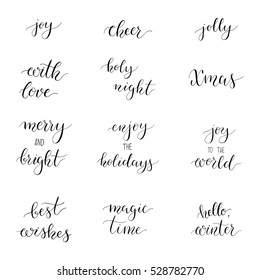 joy
cheer
jolly
with
love
holy
night
Xmas
merry
AND
bright
enjoy
THE
holidays
joy
TO THE
world
best
wishes
magic
time
hello,
winter
shutterstock.com · 528782770